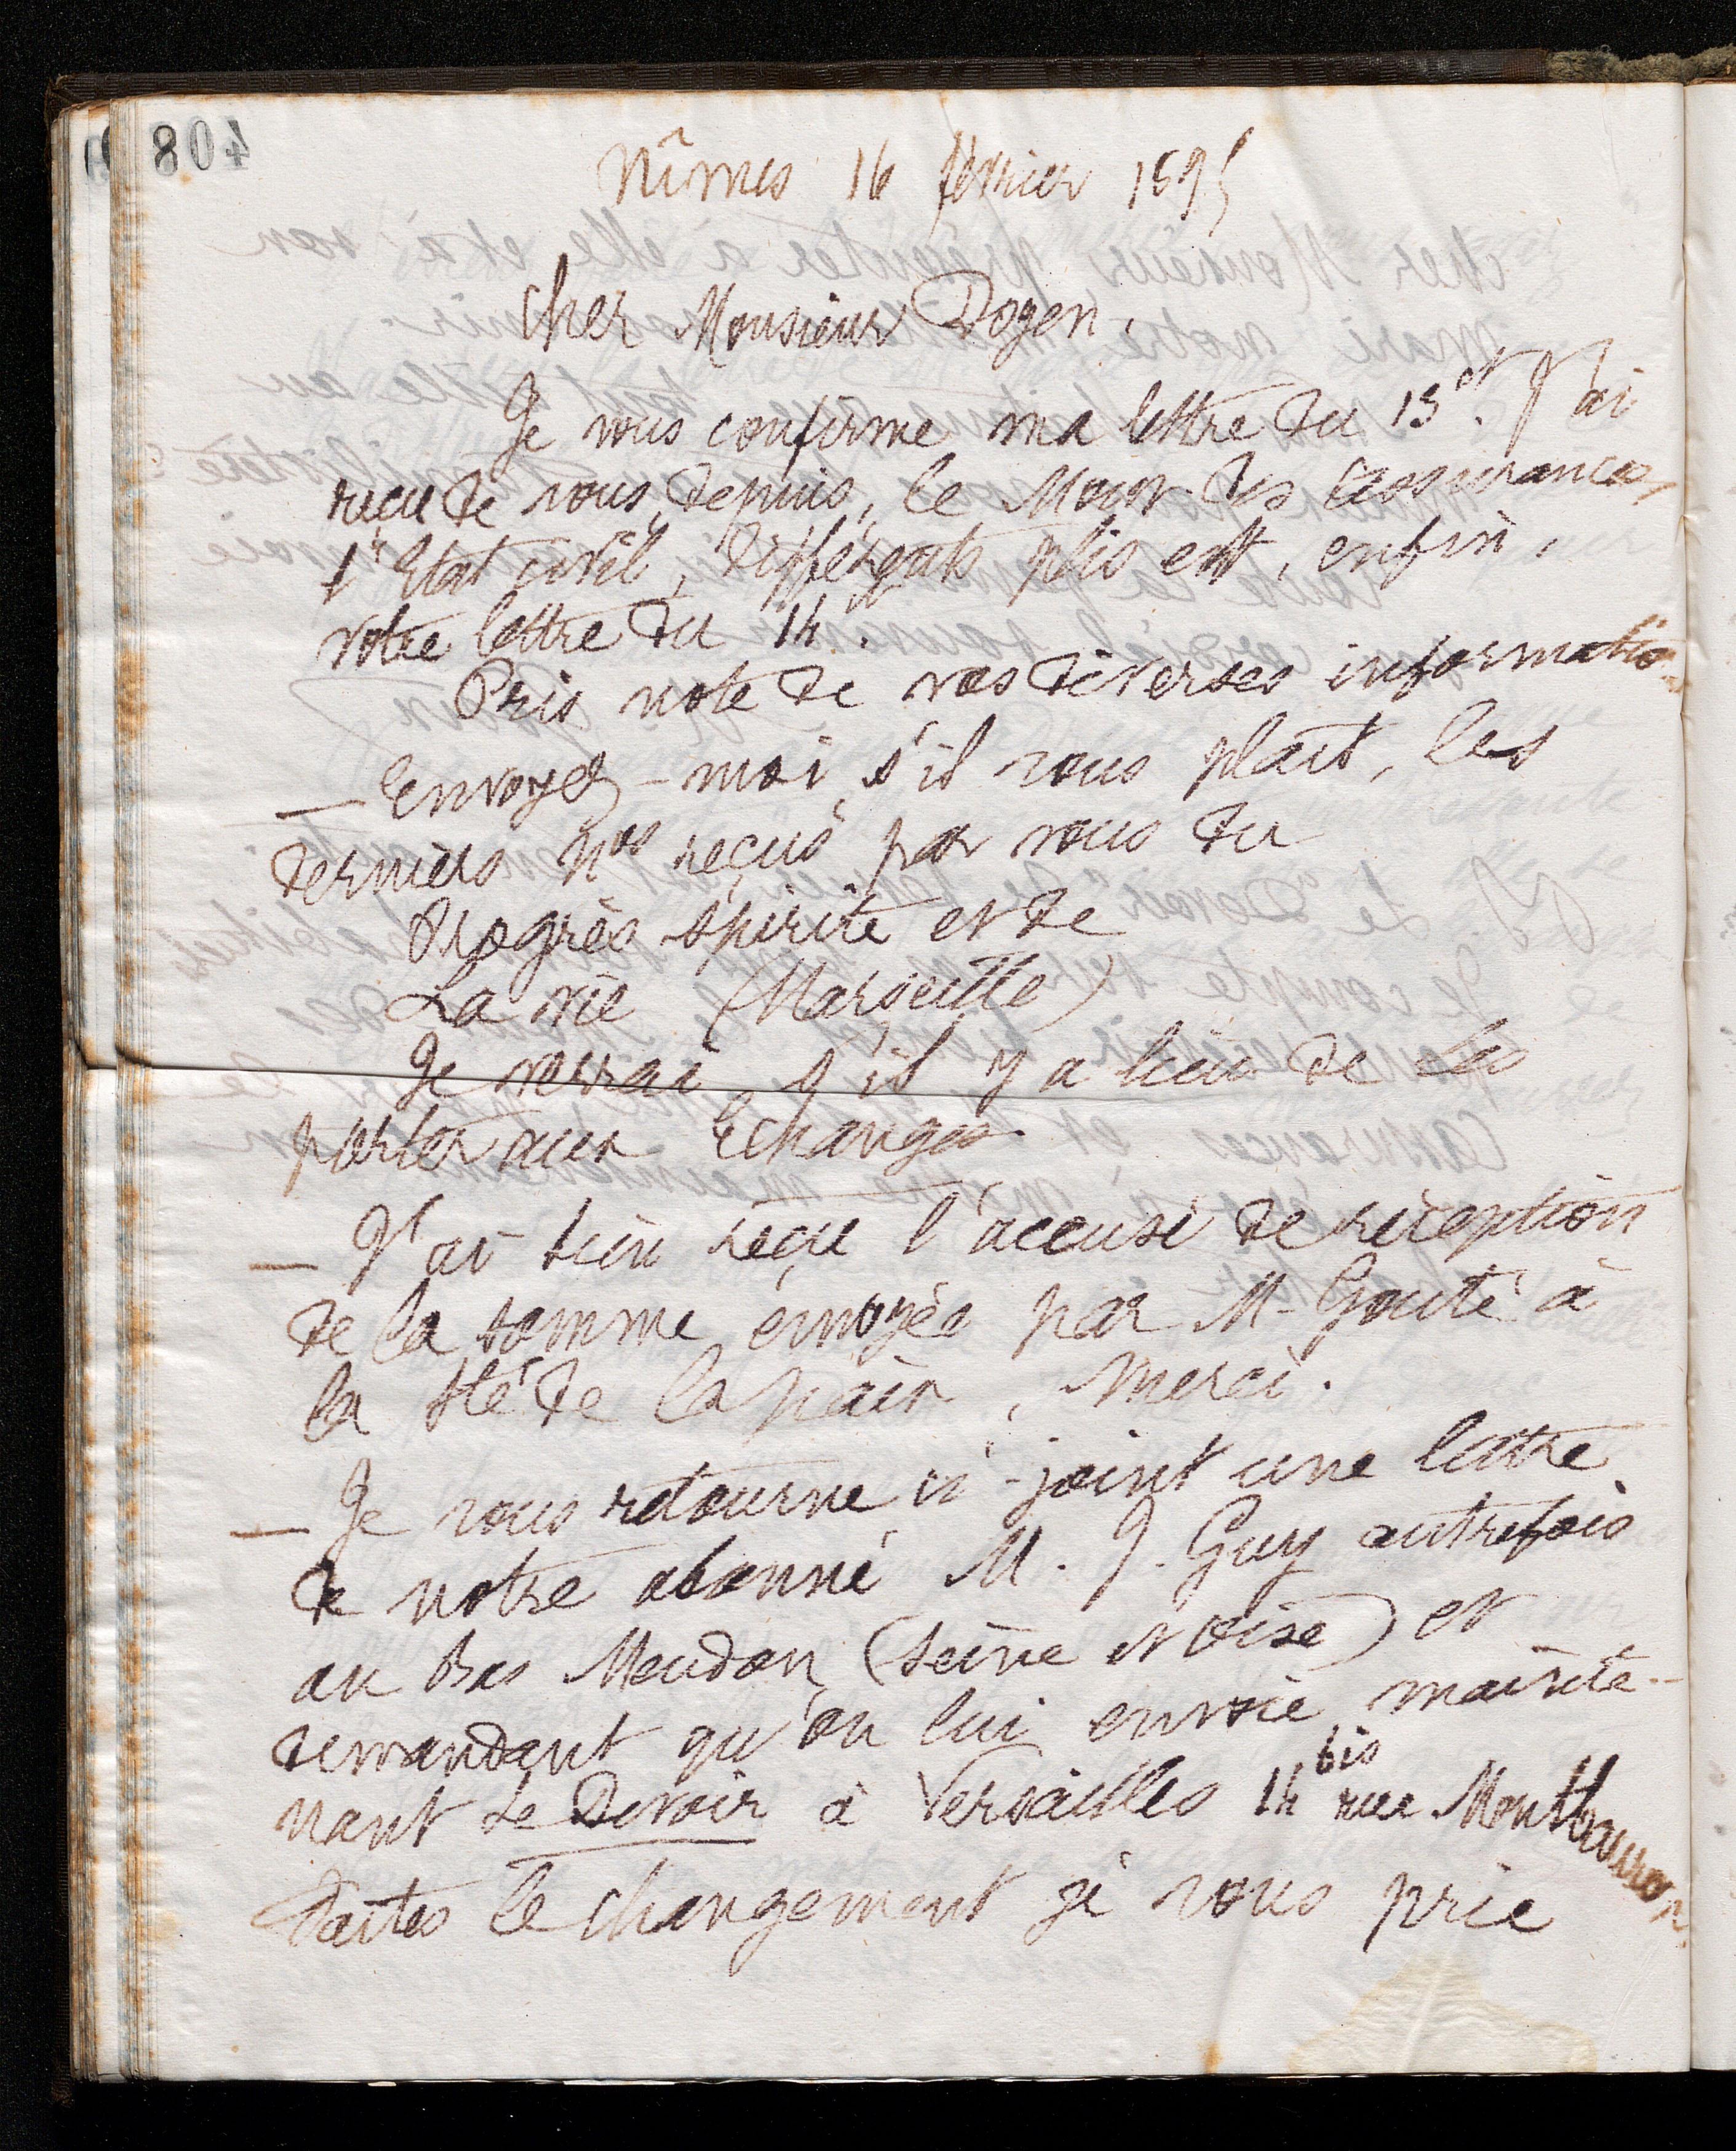 408
Nîmes 16 février 1895
Cher Monsieur Doyen,
Je vous confirme ma lettre du 13 ct. J'ai
reçu de vous, depuis, le Monr des assurances,
l'Etat civil, différents plis et, enfin,
votre lettre du 14.
Pris note de vos diverses informations
— Envoyez-moi, s'il vous plait, les
derniers nos reçus par vous du
Progrès spirite et de
La vie (Marseille)
Je verrai s'il y a lieu de les
porter aux Echanges
— J'ai bien reçu l'accusé de réception
de la somme envoyée par M. Gouté à
la Sté de la paix, merci.
— Je vous retourne ci-joint une lettre
de notre abonné M. J. Guy autrefois
au bas Meudon (Seine et Oise) et
demandant qu'on lui envoie mainte-
nant Le Devoir à Versailles 14 bis rue Montbauron
Faites le changement je vous prie